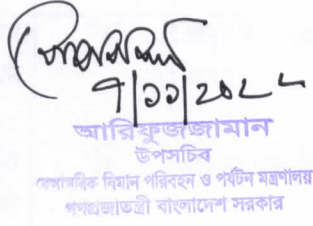 আরিফুজজামান
উপসচিব
বেসামরিক বিমান পরিবহন ও পর্যটন মন্ত্রণালয়
গণপ্রজাতন্ত্রী বাংলাদেশ সরকার